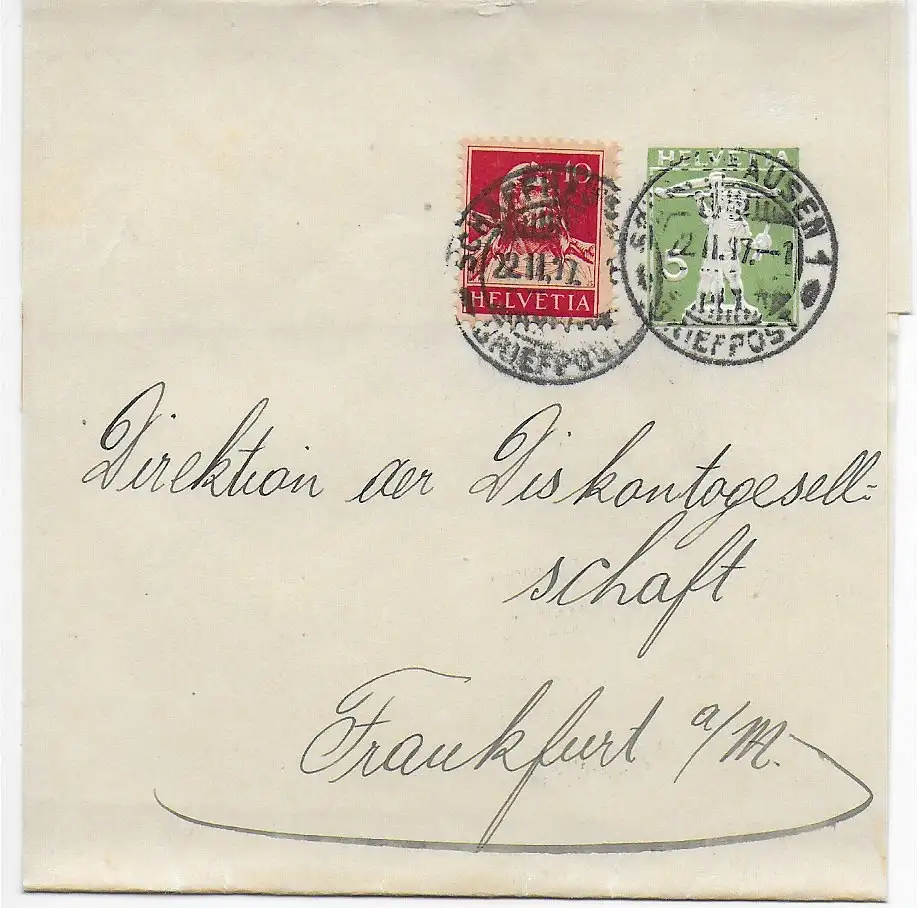 10
HELVETIA
HELVETIA
5
SCHAFFHAUSEN
22.II.17.
BRIEFPOST
SCHAFFHAUSEN 1
22.II.17.–1
BRIEFPOST
Direktion der Diskontogesell-
schaft
Frankfurt a/M.